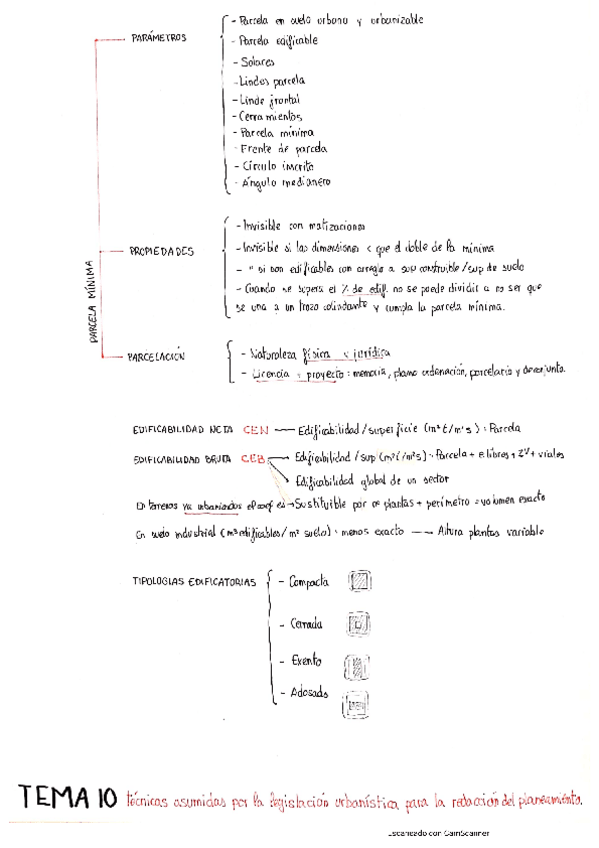 PARCELA MÍNIMA
PARÁMETROS
- Parcela en suelo urbano y urbanizable
- Parcela edificable
- Solares
- Lindes parcela
- Linde frontal
- Cerramientos
- Parcela mínima
- Frente de parcela
- Círculo inscrito
- Ángulo medianero
PROPIEDADES
- Invisible con matizaciones
- Invisible si las dimensiones < que el doble de la mínima
- " si son edificables con arreglo a sup construible/sup de suelo
- Cuando se supera el % de edif. no se puede dividir a no ser que
se una a un trozo colindante y cumpla la parcela mínima.
PARCELACIÓN
- Naturaleza física y jurídica
- Licencia + proyecto: memoria, plano ordenación, parcelario y conjunto.
EDIFICABILIDAD NETA CEN — Edificabilidad/superficie (m²t/m²s): Parcela
EDIFICABILIDAD BRUTA CEB Edificabilidad/sup (m²t/m²s): Parcela + E libres + ZV + viales
Edificabilidad global de un sector
En terrenos ya urbanizados el coef es → Sustituible por nº plantas + perímetro = volumen exacto
En suelo industrial (m³ edificables/m² suelo): menos exacto → Altura plantas variable
TIPOLOGIAS EDIFICATORIAS
- Compacta
- Cerrada
- Exento
- Adosado
TEMA 10 técnicas asumidas por la legislación urbanística para la redacción del planeamiento.
Escaneado con CamScanner